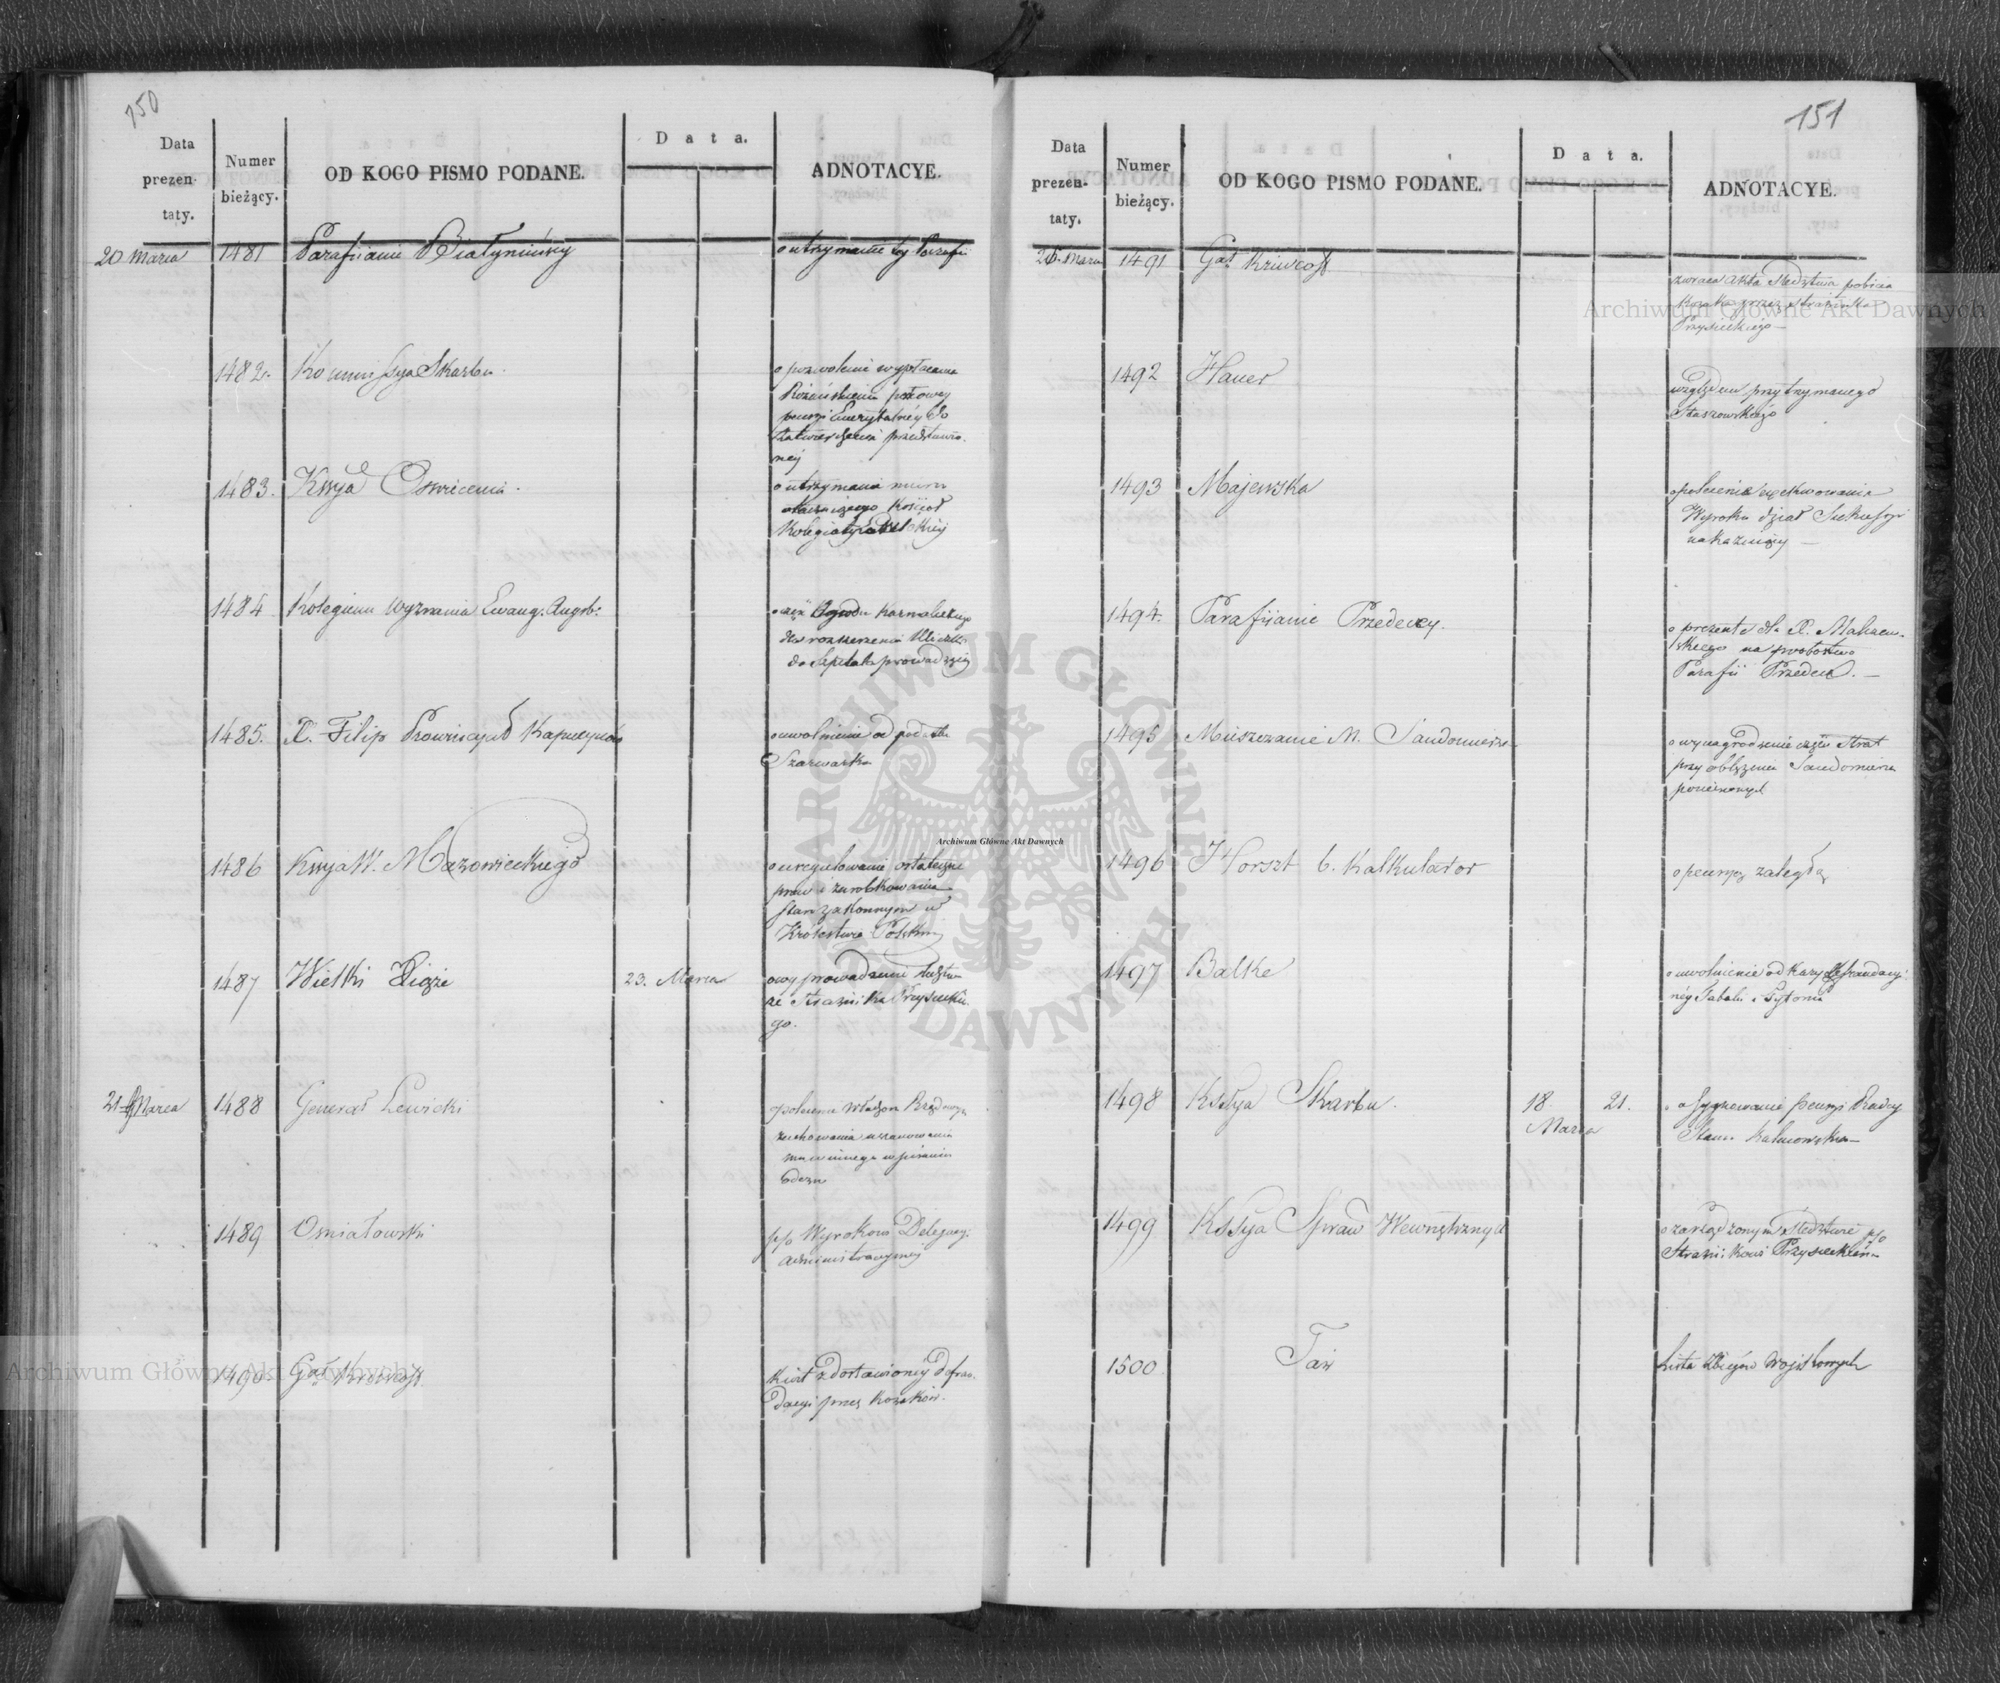 150
Data
prezen-
taty.
Numer
bieżący.
OD KOGO PISMO PODANE.
Data.
ADNOTACYE.
20 Marca 1481 Parafiianie
o utrzymanie tej Parafii
1482. Kommissya Skarbu.
o pozwolenie wypłacania
połowy
pensyi Emerytalnéy do
zatwierdzenia przedstawio.
néj
1483. Kssya Oswiecenia.
o utrzymania muru
Kościoł
1484 Kolegium wyznania Ewang. Augsb:
o część Ogrodu Karmelickiego
dla rozszerzenia Uliczki
do Szpitala prowadzącej
1485. X. Filip Prowincyał Kapucynów
o uwolnienie od podatku
Szarwarku
1486 Kssya W. Mazowieckiego
o uregulowanie ostateczne
praw i zarobkowania
stanu zakonnym w
Królestwie Polskim
1487 Wielki Xiąże 23. Marca
o wyprowadzenie śledztwa
ze Strażnika Przysieckie.
go.
21 Marca 1488 Generał Lewicki
polecenie Władzom Rządowym
zachowania uszanowania
w pisaniu
odezw
1489 Omiałowski
p/o Wyrokowi Delegacyi
Administracyjnej
1490. Gał Kriwcoff
Kwit z dostawionej defrau.
dacyi przez Kozaków.
151
Data
prezen-
taty.
Numer
bieżący.
OD KOGO PISMO PODANE.
Data.
ADNOTACYE.
21. Marca 1491 Gał Kriwcoff
zwraca Akta śledztwa pobicia
Kozaka przez strażnika
Przysieckiego —
1492 Hauer
względem przytrzymanego
Staszowskiego
1493 Majewska
o polecenie wyexekwowania
Wyroku dział Sukcessyi
nakazujący —
1494. Parafiianie Przedeccy.
o prezentę dla X. Makow.
skiego na probostwo
Parafii Przedecz. —
1495 Mieszczanie M. Sandomierza
o wynagrodzenie części Strat
przy oblężeniu Sandomierza
poniesionych
1496 Horszt b. Kalkulator
o pensyą zaległą
1497 Balke
o uwolnienie od Kary defraudacyi.
néy Tabaki i Tytoniu
1498 Kssya Skarbu. 18 21.
Marca
o assygnowanie pensyi Radcy
Stanu Kalinowskiem —
1499 Kssya Spraw Wewnętrznych
o zarządzonym śledztwie p/o
Strażnikowi Przysieckiemu
1500 Taż
Lista zbiegów wojskowych
Archiwum Główne Akt Dawnych
Archiwum Główne Akt Dawnych
Archiwum Główne Akt Dawnych
ARCHIWUM GŁÓWNE AKT DAWNYCH